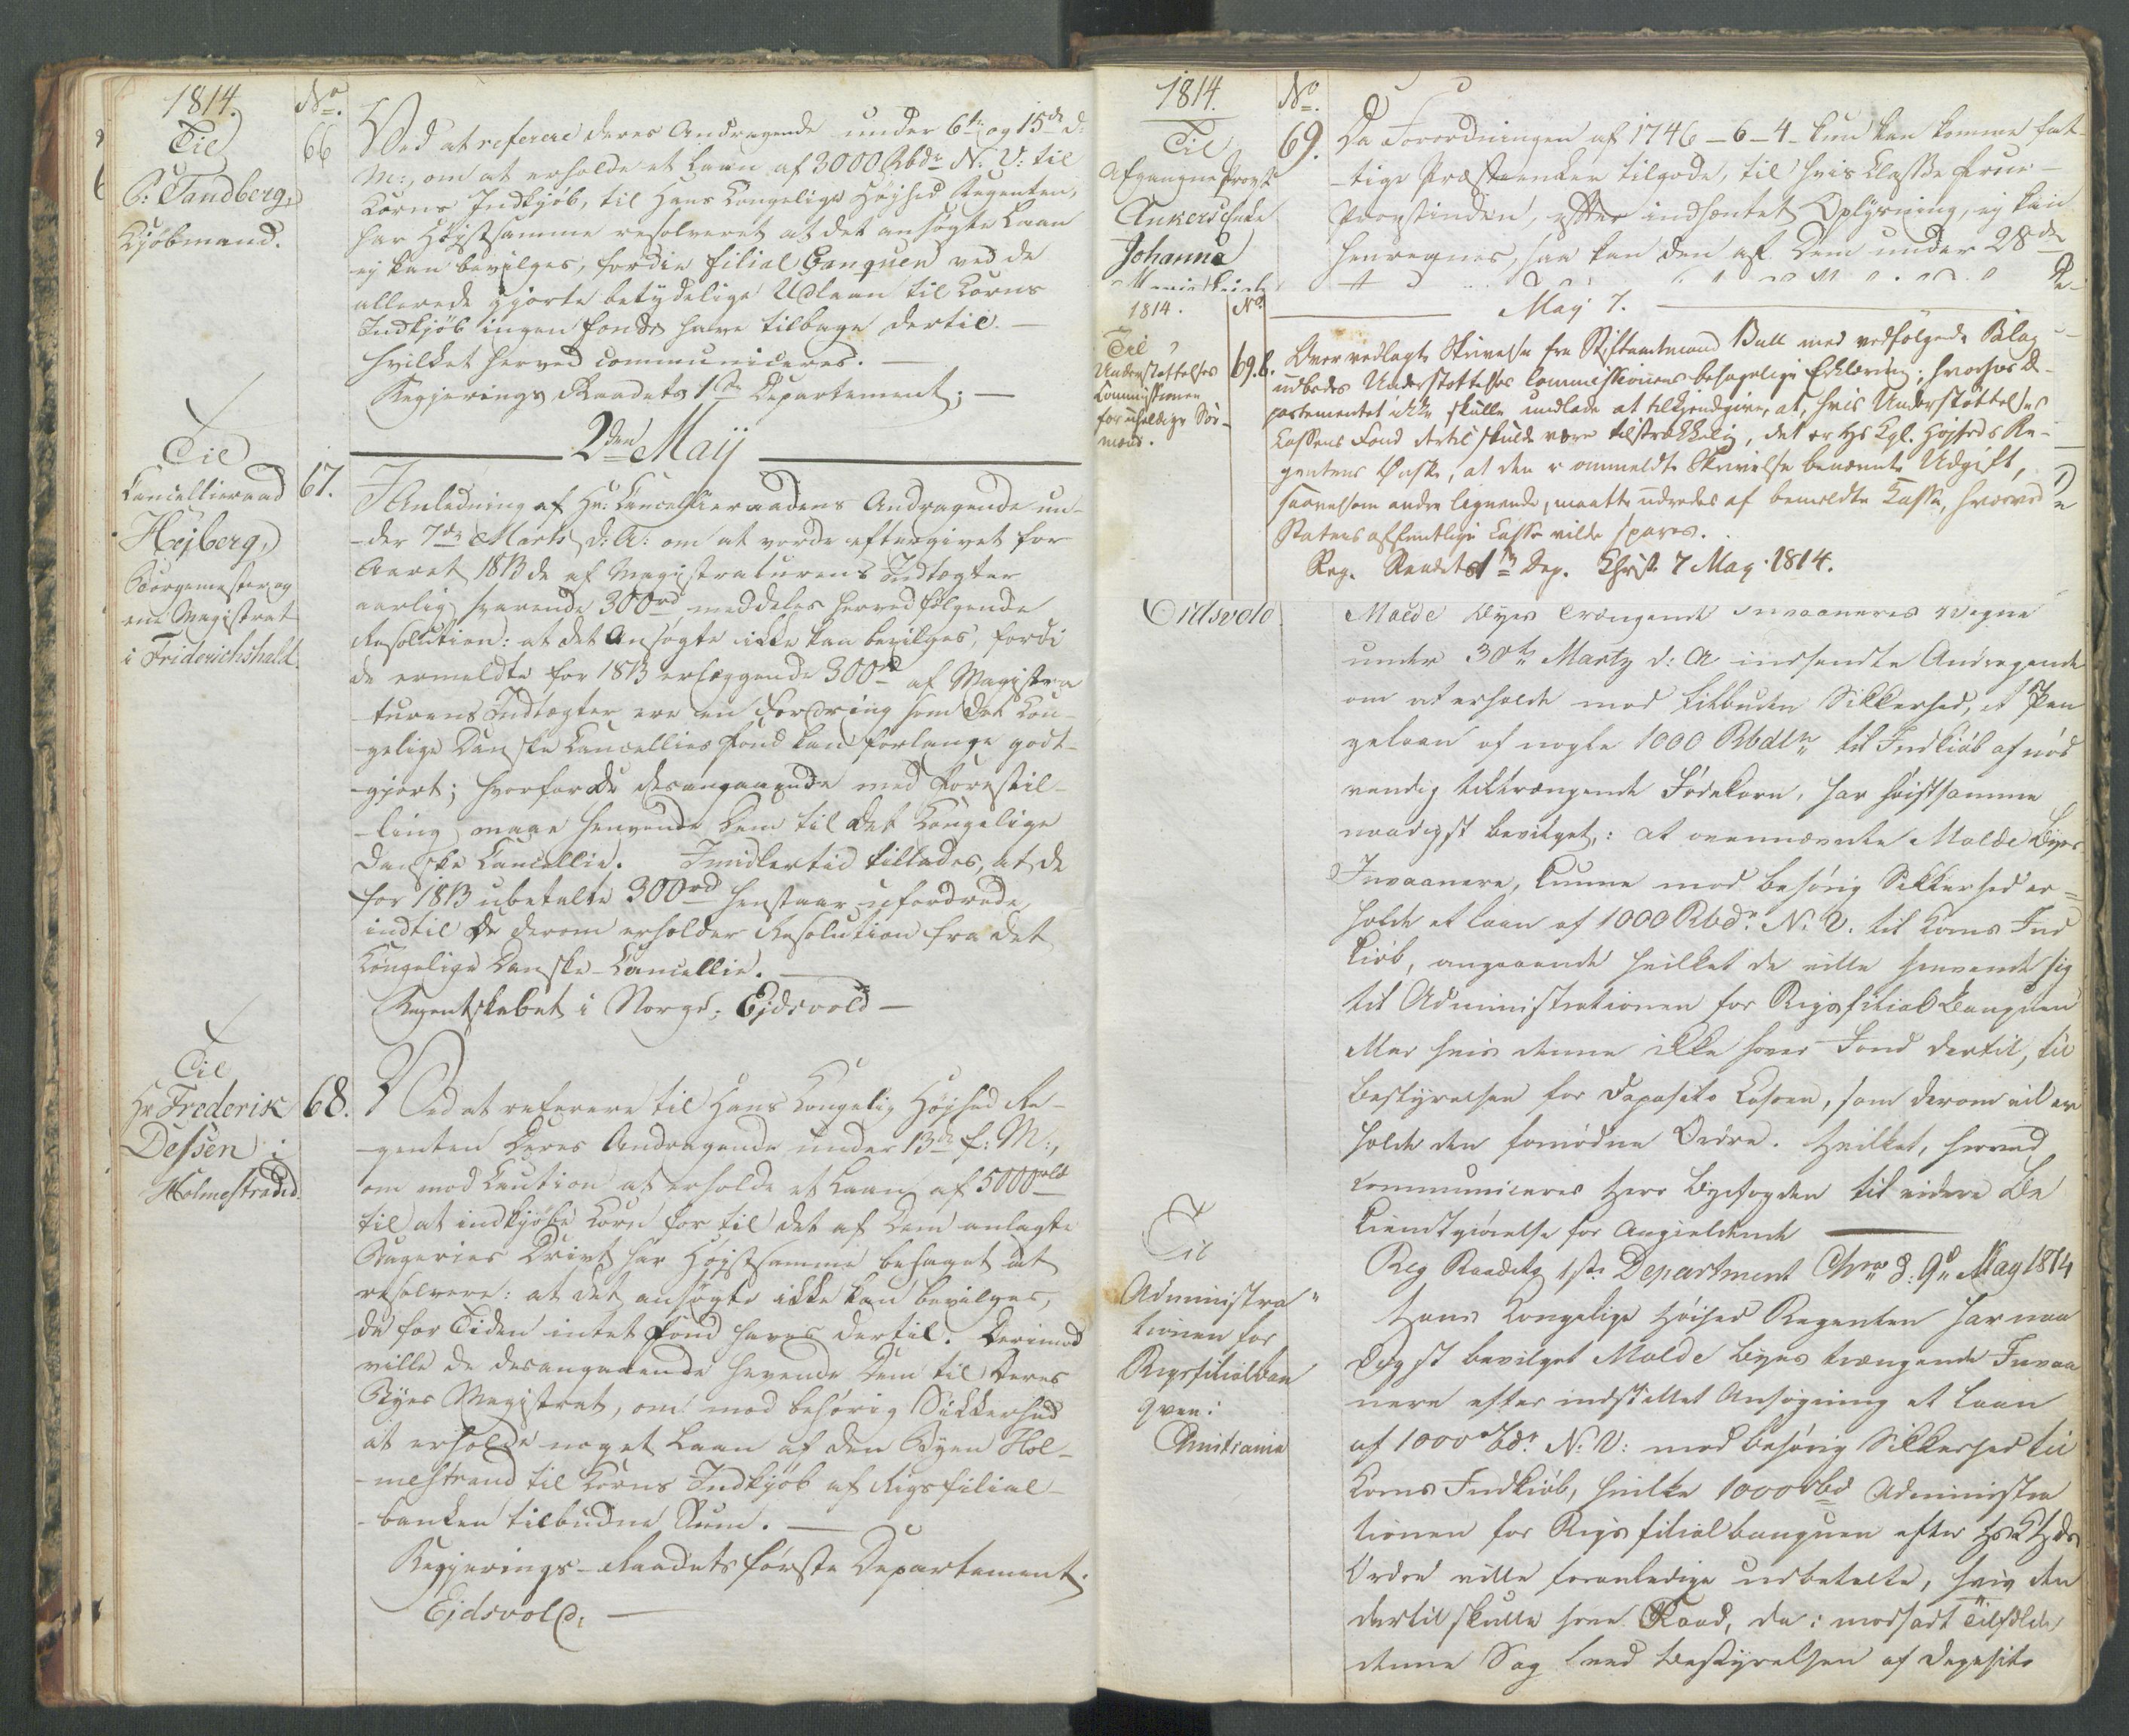 1814.
No.
Til
P: Tandberg,
Kjöbmand.
66
Ved at referere deres Andragende under 6te og 15de d:
M:, om at erholde et Laan af 3000 Rbdr N: V: til
Korns Indkjöb, til Hans Kongelige Höjhed Regenten,
har Höjstsamme resolveret at det ansögte Laan
ej kan bevilges, fordie filial Banquen ved de
allerede gjorte betydelige Udlaan til Korns
Indkjöb ingen fonds have tilbage dertil. —
hvilket herved communiceres. —
Regjerings Raadets 1ste Departement; —
2den Maij
Til
Cancellieraad
Hejberg,
Borgemester og
ene Magistrat
i Friderichshald.
67.
I Anledning af Hr: Cancellieraadens Andragende un-
-der 7de Marts d: A: om at vorde eftergivet for
Aaret 1813 de af Magistraturens Indtægter
aarlig svarende 300rd meddeles herved fölgende
Resolution: at det Ansögte ikke kan bevilges, fordi
de ermeldte for 1813 erlæggende 300rd af Magistra
-turens Indtægter ere en Fordring som det Kon-
-gelige Danske Cancellies Fond kan forlange godt-
-gjort; hvorfor De desangaaende med Forestil-
-ling maae henvende Dem til det Kongelige
Danske Cancellie. Imidlertid tillades, at de
for 1813 ubetalte 300rd henstaar ufordrede,
indtil De derom erholder Resolution fra det
Kongelige Danske Cancellie. —
Regentskabet i Norge; Ejdsvold —
Til
Hr Frederik
Dessen i
Holmestrand.
68.
Ved at referere til Hans Kongelig Höjhed Re-
-genten Deres Andragende under 13de f: M:,
om mod Caution at erholde et Laan af 5000
til at indkjöbe Korn for til det af Dem anlagte
Bageries Drivt har Höjstsamme behaget at
resolvere: at det ansögte ikke kan bevilges,
da for Tiden intet Fond haves dertil. Derimod
ville De desangaaende hevende Dem til Deres
Byes Magistrat, om mod behörig Sikkerhed
at erholde noget Laan af den Byen Hol-
-mestrand til Korns Indkjöb af Rigsfilial-
-banken tilbudne Sum. —
Regjerings-Raadets förste Departement;
Ejdsvold; —
1814.
No.
Til
Afgangne Provst
Ankers Enke
Johanna
69.
Da Forordningen af 1746 - 6 - 4 - kun kan komme fat-
-tige Præsteenker tilgode, til hvis Classe Frue-
Provstinden, efter indhæntet Oplysning, ej kan
henregnes, saa kan den af Dem under 28de
1814.
No.
May 7.
Til
Understöttelses
Commissionen
for uheldige Söe-
mænd.
69.b.
Over vedlagte Skrivelse fra Stiftamtmand Bull med vedfölgede Bilag
udbedes Understöttelses Commissionens behagelige Erklæring; hvorhos De-
partementet ikke skulle undlade at tilkjendegive, at, hvis Understöttelses
Cassens Fond dertil skulde være tilstrækkelig, det er Hs Kgl. Höjheds Re-
gentens Önske, at den i ommeldte Skrivelse benævnte Udgift,
saavelsom andre lignende, maatte udredes af bemeldte Casse, hvorved
Statens offentlige Casse vilde spares.
Reg. Raadets 1ste Dep. Christ. 7 May 1814.
Eidsvold
Molde Byes trængende Indvaaneres Vegne
under 30te Martz d: A indsendte Andragende
om at erholde mod tilbuden Sikkerhed, et Pen
gelaan af nogle 1000 Rbdlr til Indkiöb af nöd
vendig tiltrængende Födekorn, har höistsamme
naadigst bevilget: at ovennævnte Molde Byes
Invaanere, kunne mod behörig Sikkerhed er=
holde et Laan af 1000 Rbdr N. V. til Korns Ind
kiöb, angaaende hvilket de ville henvende sig
til Administrationen for Rigsfilial Banquen
Men hvis denne ikke haver Fond dertil, til
Bestyrelsen for Deposito Cassen, som derom vil er
holde den fornödne Ordre. Hvilket, herved
communiceres Herr Byefogden til videre Be
kiendtgiörelse for Angieldende
Reg Raadets 1ste Department Chra d: 9de May 1814
Til
Administra
tionen for
Rigsfilialban
qven:
Christiania
Hans Kongelige Höihed Regenten har naa
digst bevilget Molde Byes trængende Invaa
nere efter indstillet Ansögning et Laan
af 1000 rbdr N: V: mod behörig Sikkerhed til
Korns Indkiöb, hvilke 1000 rbd Administra
tionen for Rigs filial banquen efter Hs K Hds
Ordre ville foranledige udbetalte, hvis den
dertil skulle have Raad, da i modsat Tilfælde
denne Sag ved Bestyrelsen af Deposito